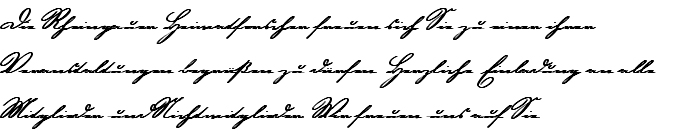 Die Rheingauer Heimatforscher freuen sich Sie zu einer ihrer
Veranstaltungen begrüßen zu dürfen Herzliche Einladung an alle
Mitglieder und Nichtmitglieder Wir freuen uns auf Sie